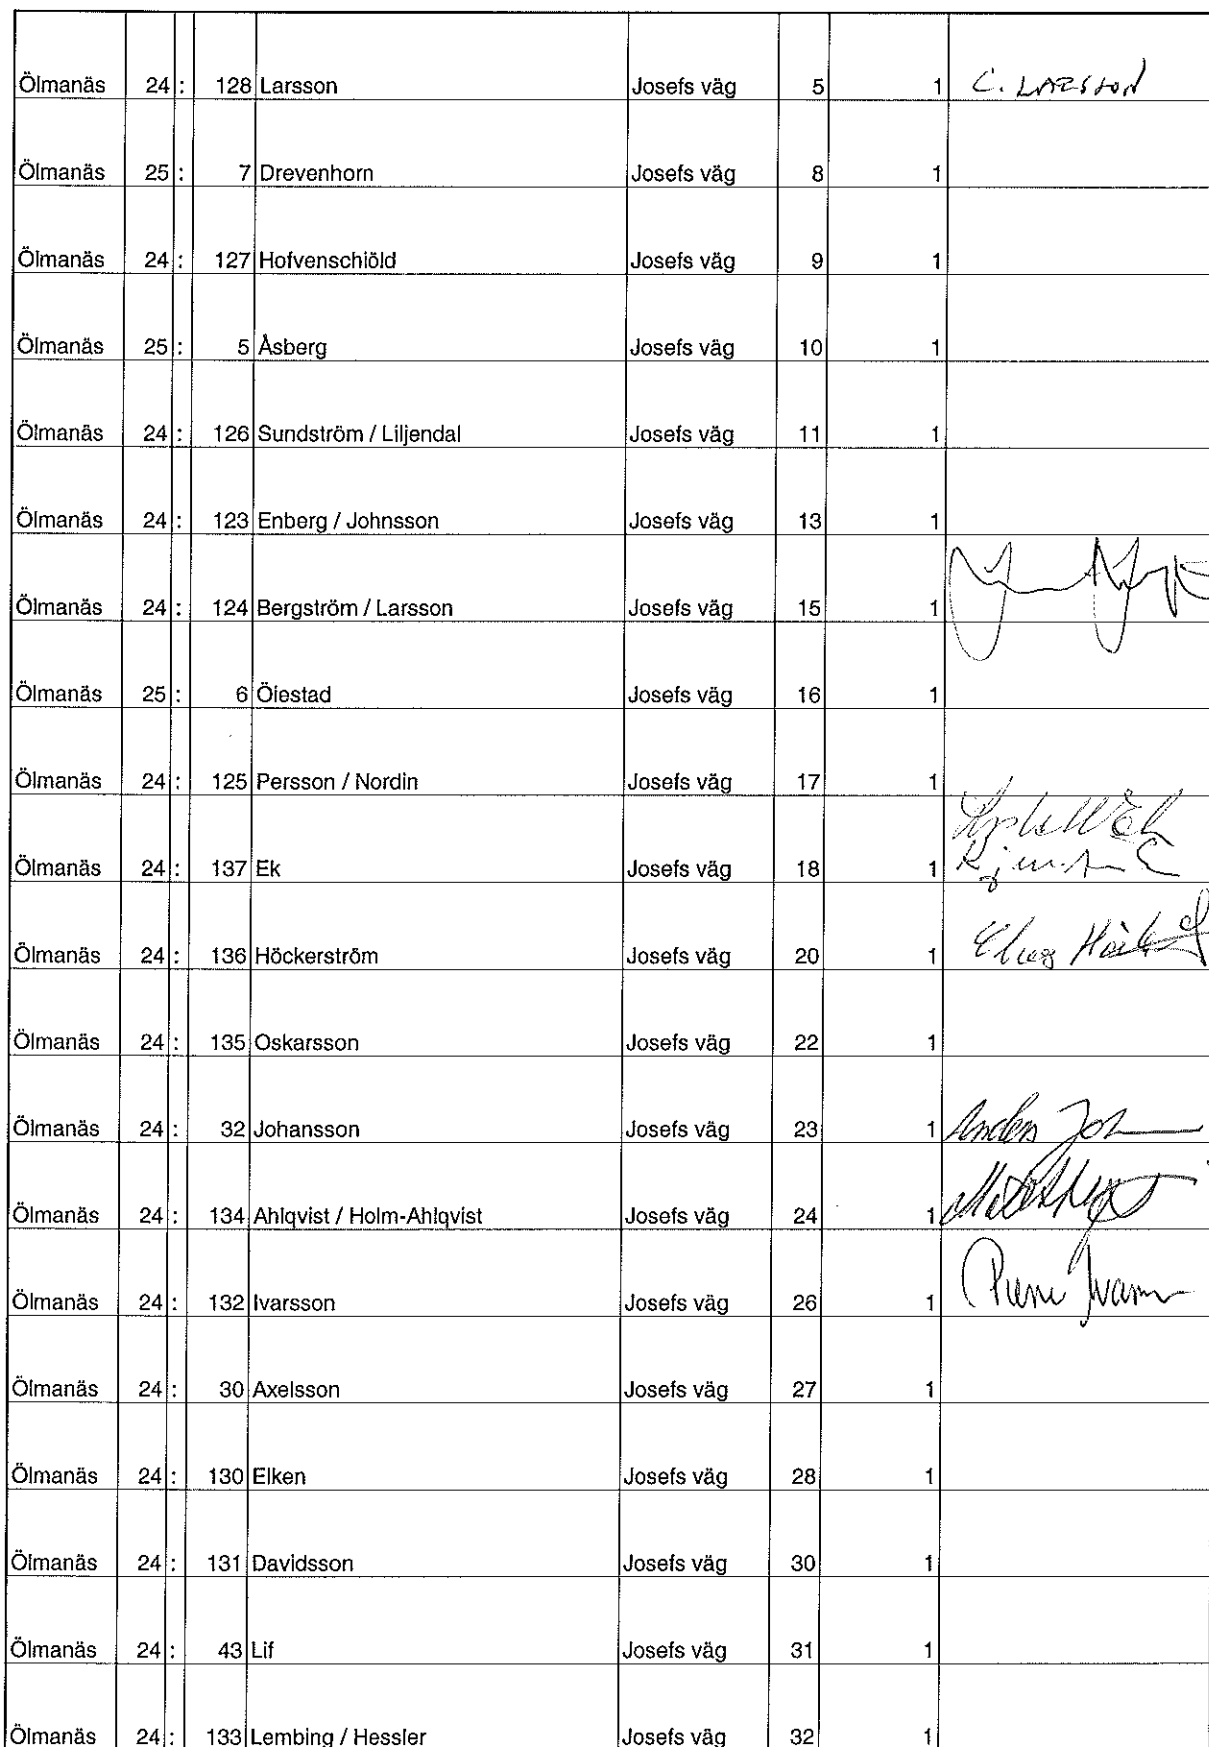 Ölmanäs 24 : 128 Larsson Josefs väg 5 1 C. LARSSON
Ölmanäs 25 : 7 Drevenhorn Josefs väg 8 1
Ölmanäs 24 : 127 Hofvenschiöld Josefs väg 9 1
Ölmanäs 25 : 5 Åsberg Josefs väg 10 1
Ölmanäs 24 : 126 Sundström / Liljendal Josefs väg 11 1
Ölmanäs 24 : 123 Enberg / Johnsson Josefs väg 13 1
Ölmanäs 24 : 124 Bergström / Larsson Josefs väg 15 1
Ölmanäs 25 : 6 Ölestad Josefs väg 16 1
Ölmanäs 24 : 125 Persson / Nordin Josefs väg 17 1
Ölmanäs 24 : 137 Ek Josefs väg 18 1
Ölmanäs 24 : 136 Höckerström Josefs väg 20 1
Ölmanäs 24 : 135 Oskarsson Josefs väg 22 1
Ölmanäs 24 : 32 Johansson Josefs väg 23 1 Anders Joh
Ölmanäs 24 : 134 Ahlqvist / Holm-Ahlqvist Josefs väg 24 1
Ölmanäs 24 : 132 Ivarsson Josefs väg 26 1
Ölmanäs 24 : 30 Axelsson Josefs väg 27 1
Ölmanäs 24 : 130 Elken Josefs väg 28 1
Ölmanäs 24 : 131 Davidsson Josefs väg 30 1
Ölmanäs 24 : 43 Lif Josefs väg 31 1
Ölmanäs 24 : 133 Lembing / Hessler Josefs väg 32 1